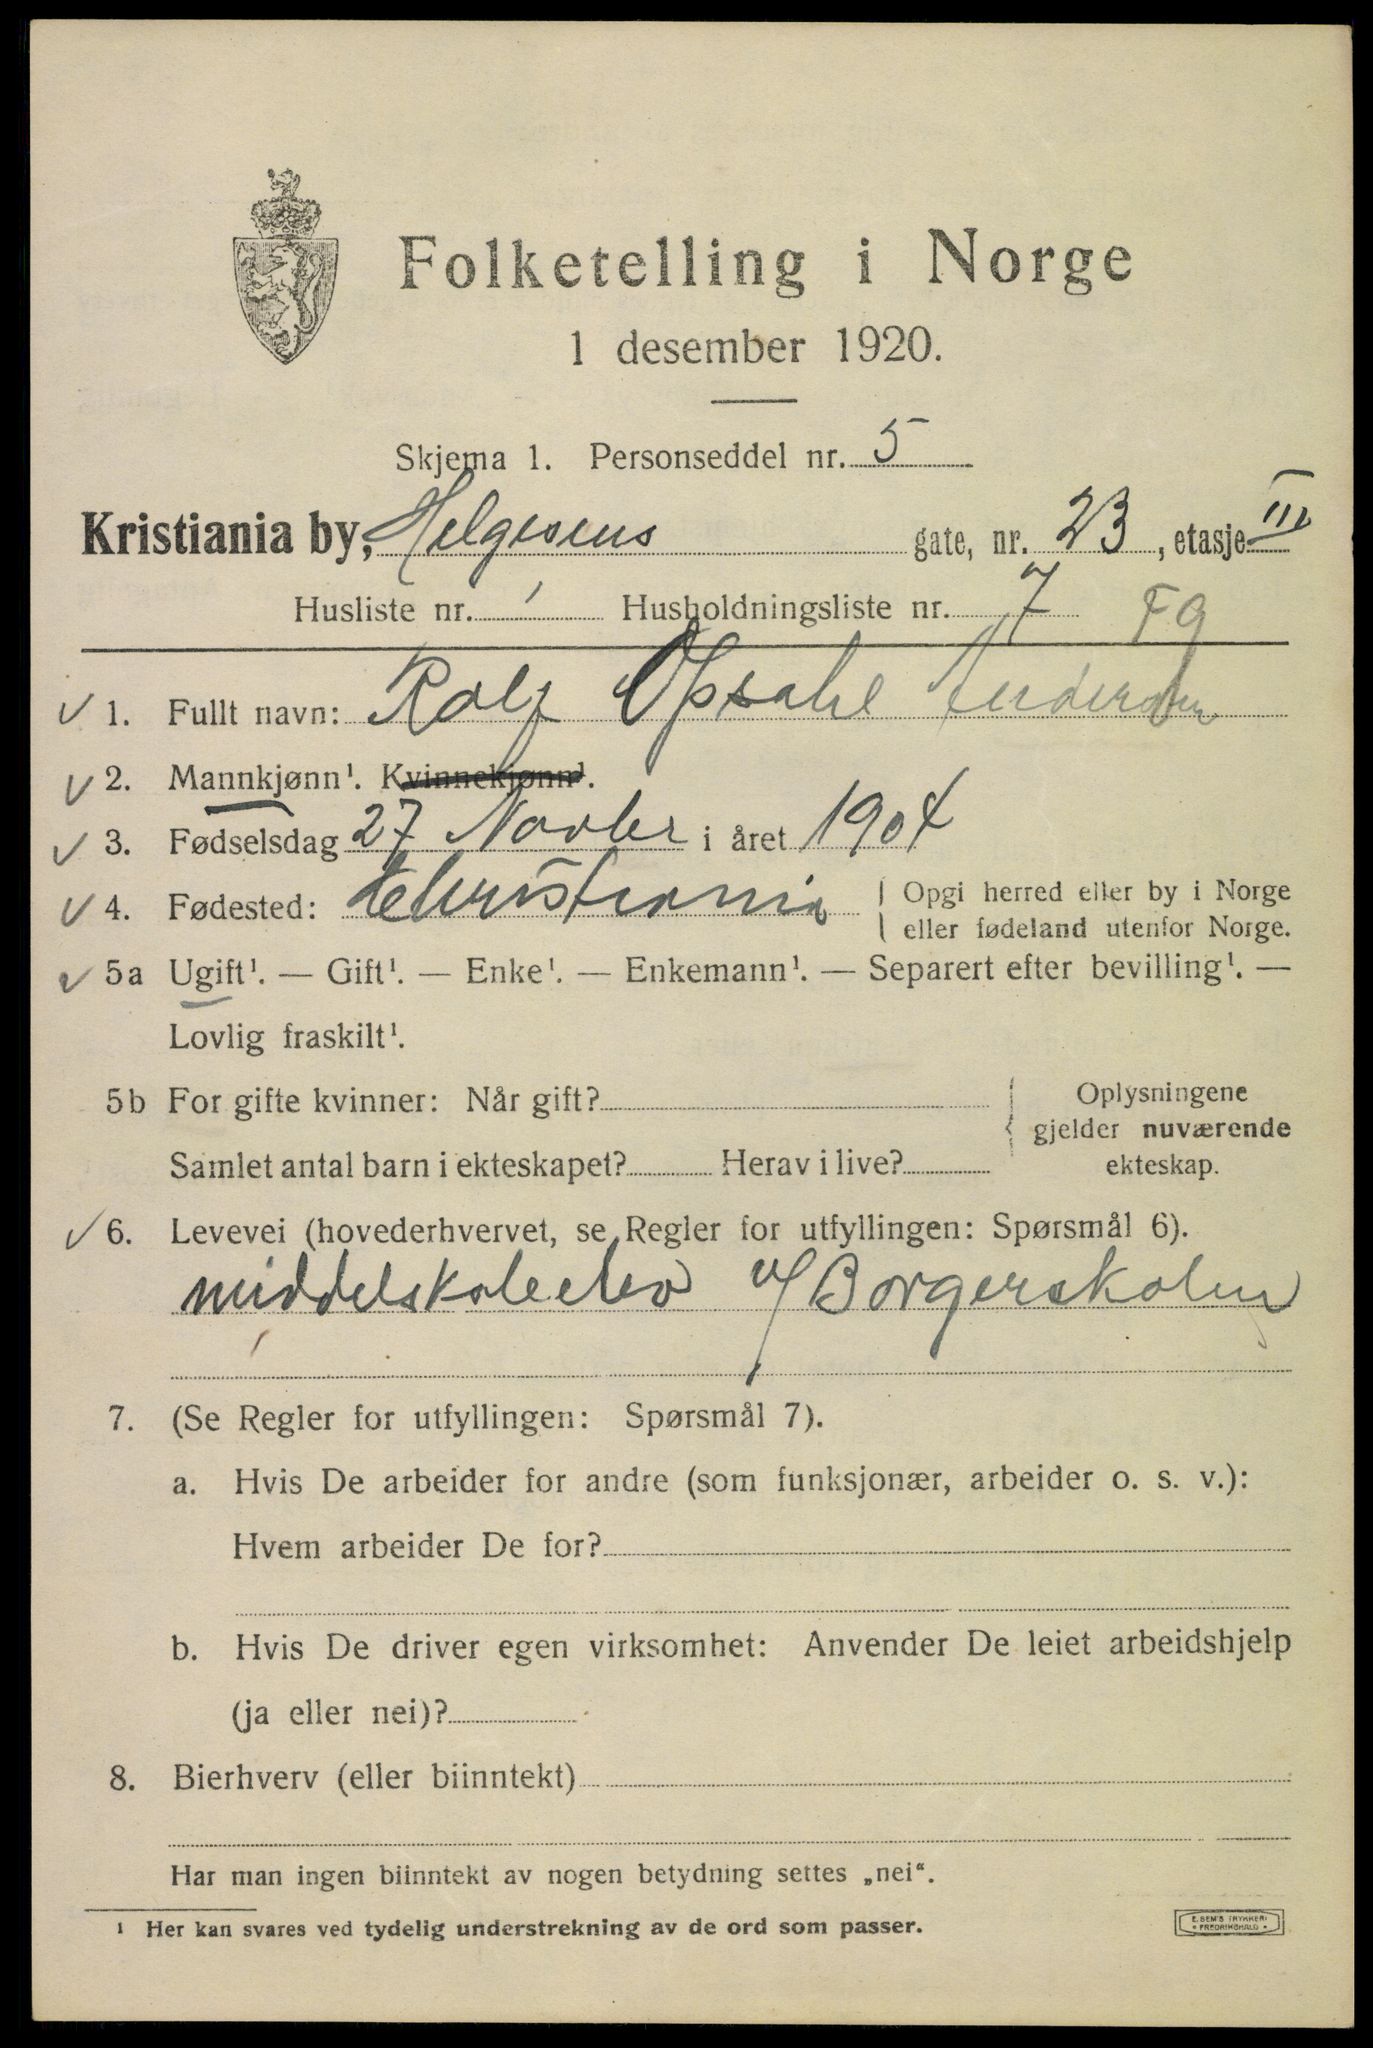 Folketelling i Norge
1 desember 1920.
Skjema 1. Personseddel nr. 5
Kristiania by, Helgesens gate, nr. 23, etasje III
Husliste nr. 1 Husholdningsliste nr. 7 F9
✓ 1. Fullt navn: Rolf Opsahl Andersen
✓ 2. Mannkjønn¹. Kvinnekjønn¹.
✓ 3. Fødselsdag 27 Novbr i året 1904
✓ 4. Fødested: Christiania { Opgi herred eller by i Norge
eller fødeland utenfor Norge.
✓ 5a Ugift¹. — Gift¹. — Enke¹. — Enkemann¹. — Separert efter bevilling¹. —
Lovlig fraskilt¹.
5b For gifte kvinner: Når gift? { Oplysningene
gjelder nuværende
Samlet antal barn i ekteskapet? Herav i live? ekteskap.
✓ 6. Levevei (hovederhvervet, se Regler for utfyllingen: Spørsmål 6).
middelskoleelev v/ Borgerskolen
7. (Se Regler for utfyllingen: Spørsmål 7).
a. Hvis De arbeider for andre (som funksjonær, arbeider o. s. v.):
Hvem arbeider De for?
b. Hvis De driver egen virksomhet: Anvender De leiet arbeidshjelp
(ja eller nei)?
8. Bierhverv (eller biinntekt)
Har man ingen biinntekt av nogen betydning settes „nei“.
¹ Her kan svares ved tydelig understrekning av de ord som passer.
E. SEM'S TRYKKERI
• FREDRIKSHALD •